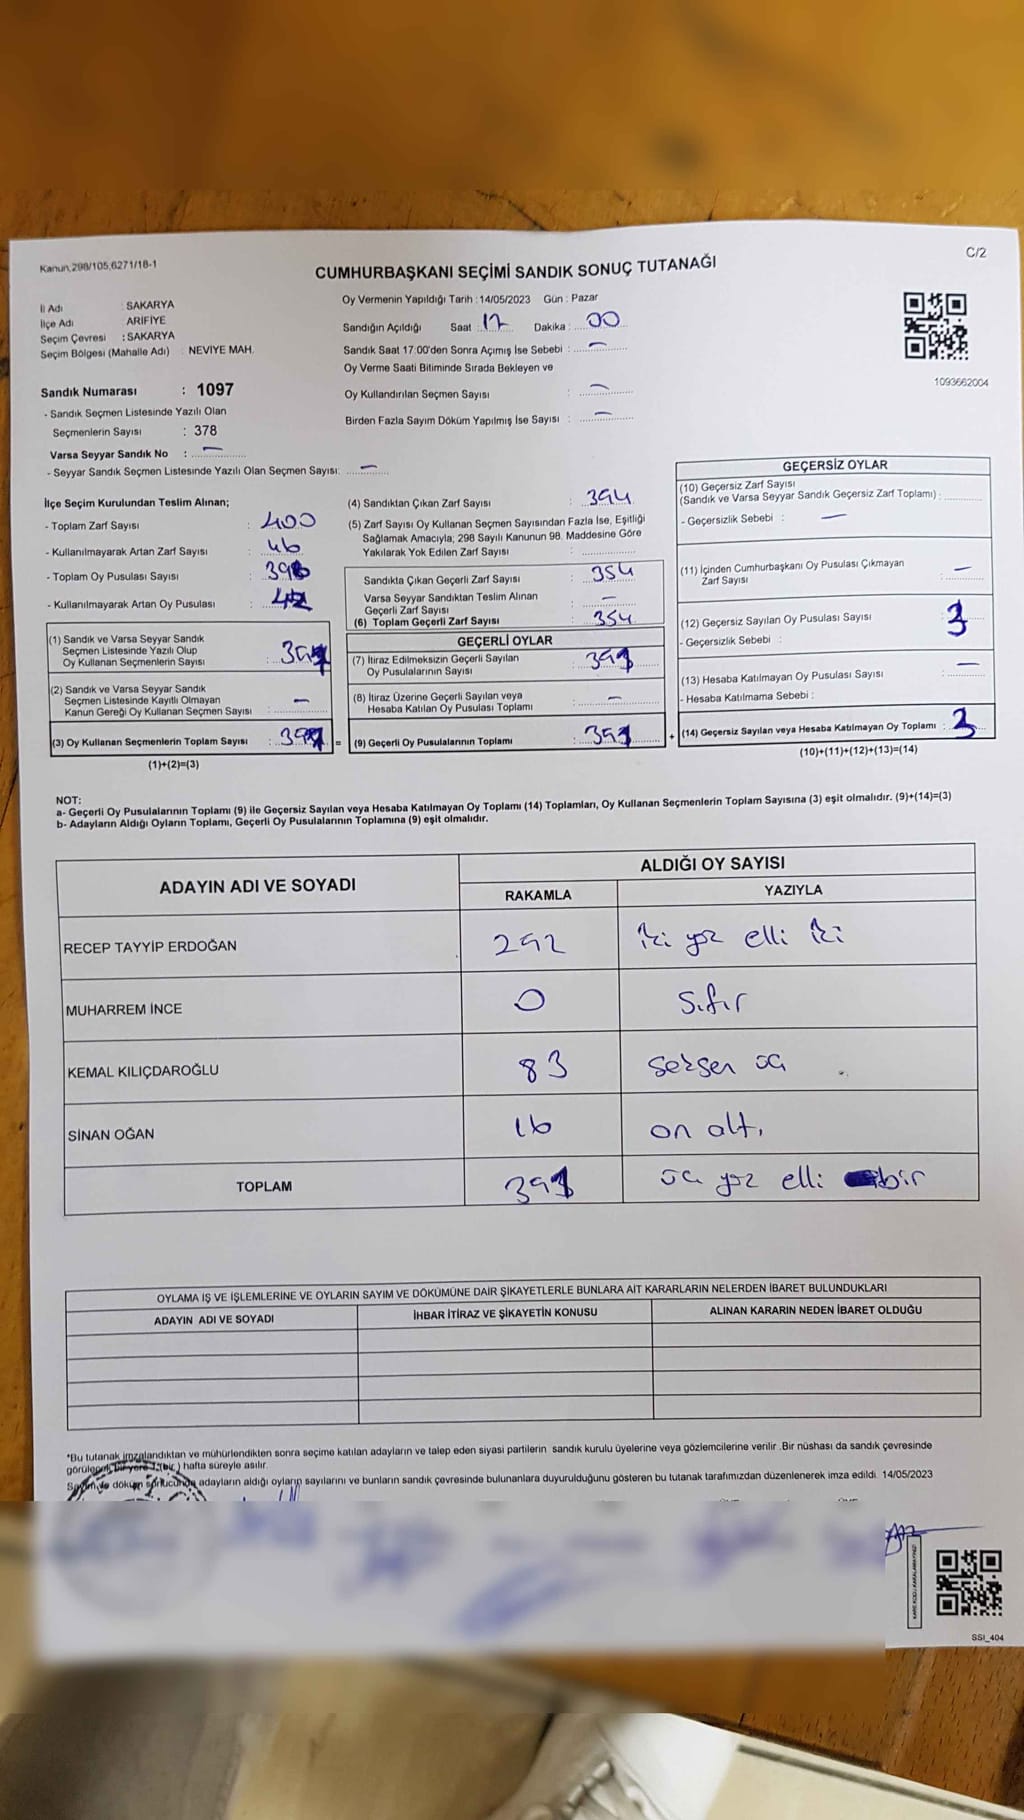 Kanun,298/105,6271/18-1
C/2
CUMHURBAŞKANI SEÇİMİ SANDIK SONUÇ TUTANAĞI
İl Adı : SAKARYA
İlçe Adı : ARİFİYE
Seçim Çevresi : SAKARYA
Seçim Bölgesi (Mahalle Adı) : NEVİYE MAH.
Oy Vermenin Yapıldığı Tarih : 14/05/2023 Gün : Pazar
Sandığın Açıldığı Saat : 17 Dakika : 00
Sandık Saat 17:00'den Sonra Açımış İse Sebebi : —
Oy Verme Saati Bitiminde Sırada Bekleyen ve
Oy Kullandırılan Seçmen Sayısı : —
Birden Fazla Sayım Döküm Yapılmış İse Sayısı : —
1093662004
Sandık Numarası : 1097
- Sandık Seçmen Listesinde Yazılı Olan
Seçmenlerin Sayısı : 378
Varsa Seyyar Sandık No : —
- Seyyar Sandık Seçmen Listesinde Yazılı Olan Seçmen Sayısı: —
İlçe Seçim Kurulundan Teslim Alınan;
- Toplam Zarf Sayısı : 400
- Kullanılmayarak Artan Zarf Sayısı : 46
- Toplam Oy Pusulası Sayısı :
- Kullanılmayarak Artan Oy Pusulası :
(1) Sandık ve Varsa Seyyar Sandık
Seçmen Listesinde Yazılı Olup
Oy Kullanan Seçmenlerin Sayısı : 354
(2) Sandık ve Varsa Seyyar Sandık
Seçmen Listesinde Kayıtlı Olmayan
Kanun Gereği Oy Kullanan Seçmen Sayısı : —
(3) Oy Kullanan Seçmenlerin Toplam Sayısı : 354 =
(1)+(2)=(3)
(4) Sandıktan Çıkan Zarf Sayısı : 354
(5) Zarf Sayısı Oy Kullanan Seçmen Sayısından Fazla İse, Eşitliği
Sağlamak Amacıyla; 298 Sayılı Kanunun 98. Maddesine Göre
Yakılarak Yok Edilen Zarf Sayısı :
Sandıkta Çıkan Geçerli Zarf Sayısı : 354
Varsa Seyyar Sandıktan Teslim Alınan
Geçerli Zarf Sayısı : —
(6) Toplam Geçerli Zarf Sayısı : 354
GEÇERLİ OYLAR
(7) İtiraz Edilmeksizin Geçerli Sayılan
Oy Pusulalarının Sayısı : 351
(8) İtiraz Üzerine Geçerli Sayılan veya
Hesaba Katılan Oy Pusulası Toplamı : —
(9) Geçerli Oy Pusulalarının Toplamı : 351 +
GEÇERSİZ OYLAR
(10) Geçersiz Zarf Sayısı
(Sandık ve Varsa Seyyar Sandık Geçersiz Zarf Toplamı) :
- Geçersizlik Sebebi : —
(11) İçinden Cumhurbaşkanı Oy Pusulası Çıkmayan
Zarf Sayısı : —
(12) Geçersiz Sayılan Oy Pusulası Sayısı : 3
- Geçersizlik Sebebi :
(13) Hesaba Katılmayan Oy Pusulası Sayısı : —
- Hesaba Katılmama Sebebi :
(14) Geçersiz Sayılan veya Hesaba Katılmayan Oy Toplamı : 3
(10)+(11)+(12)+(13)=(14)
NOT:
a- Geçerli Oy Pusulalarının Toplamı (9) ile Geçersiz Sayılan veya Hesaba Katılmayan Oy Toplamı (14) Toplamları, Oy Kullanan Seçmenlerin Toplam Sayısına (3) eşit olmalıdır. (9)+(14)=(3)
b- Adayların Aldığı Oyların Toplamı, Geçerli Oy Pusulalarının Toplamına (9) eşit olmalıdır.
ADAYIN ADI VE SOYADI ALDIĞI OY SAYISI
RAKAMLA YAZIYLA
RECEP TAYYİP ERDOĞAN 252 iki yüz elli iki
MUHARREM İNCE 0 sıfır
KEMAL KILIÇDAROĞLU 83 seksen üç
SİNAN OĞAN 16 on altı
TOPLAM 351 üç yüz elli bir
OYLAMA İŞ VE İŞLEMLERİNE VE OYLARIN SAYIM VE DÖKÜMÜNE DAİR ŞİKAYETLERLE BUNLARA AİT KARARLARIN NELERDEN İBARET BULUNDUKLARI
ADAYIN ADI VE SOYADI İHBAR İTİRAZ VE ŞİKAYETİN KONUSU ALINAN KARARIN NEDEN İBARET OLDUĞU
*Bu tutanak imzalandıktan ve mühürlendikten sonra seçime katılan adayların ve talep eden siyasi partilerin sandık kurulu üyelerine veya gözlemcilerine verilir .Bir nüshası da sandık çevresinde
görülecek bir yere 1 (bir ) hafta süreyle asılır.
Sayım ve döküm sonucunda adayların aldığı oyların sayılarını ve bunların sandık çevresinde bulunanlara duyurulduğunu gösteren bu tutanak tarafımızdan düzenlenerek imza edildi. 14/05/2023
KARE KODU KARALAMAYINIZ!
SSI_404